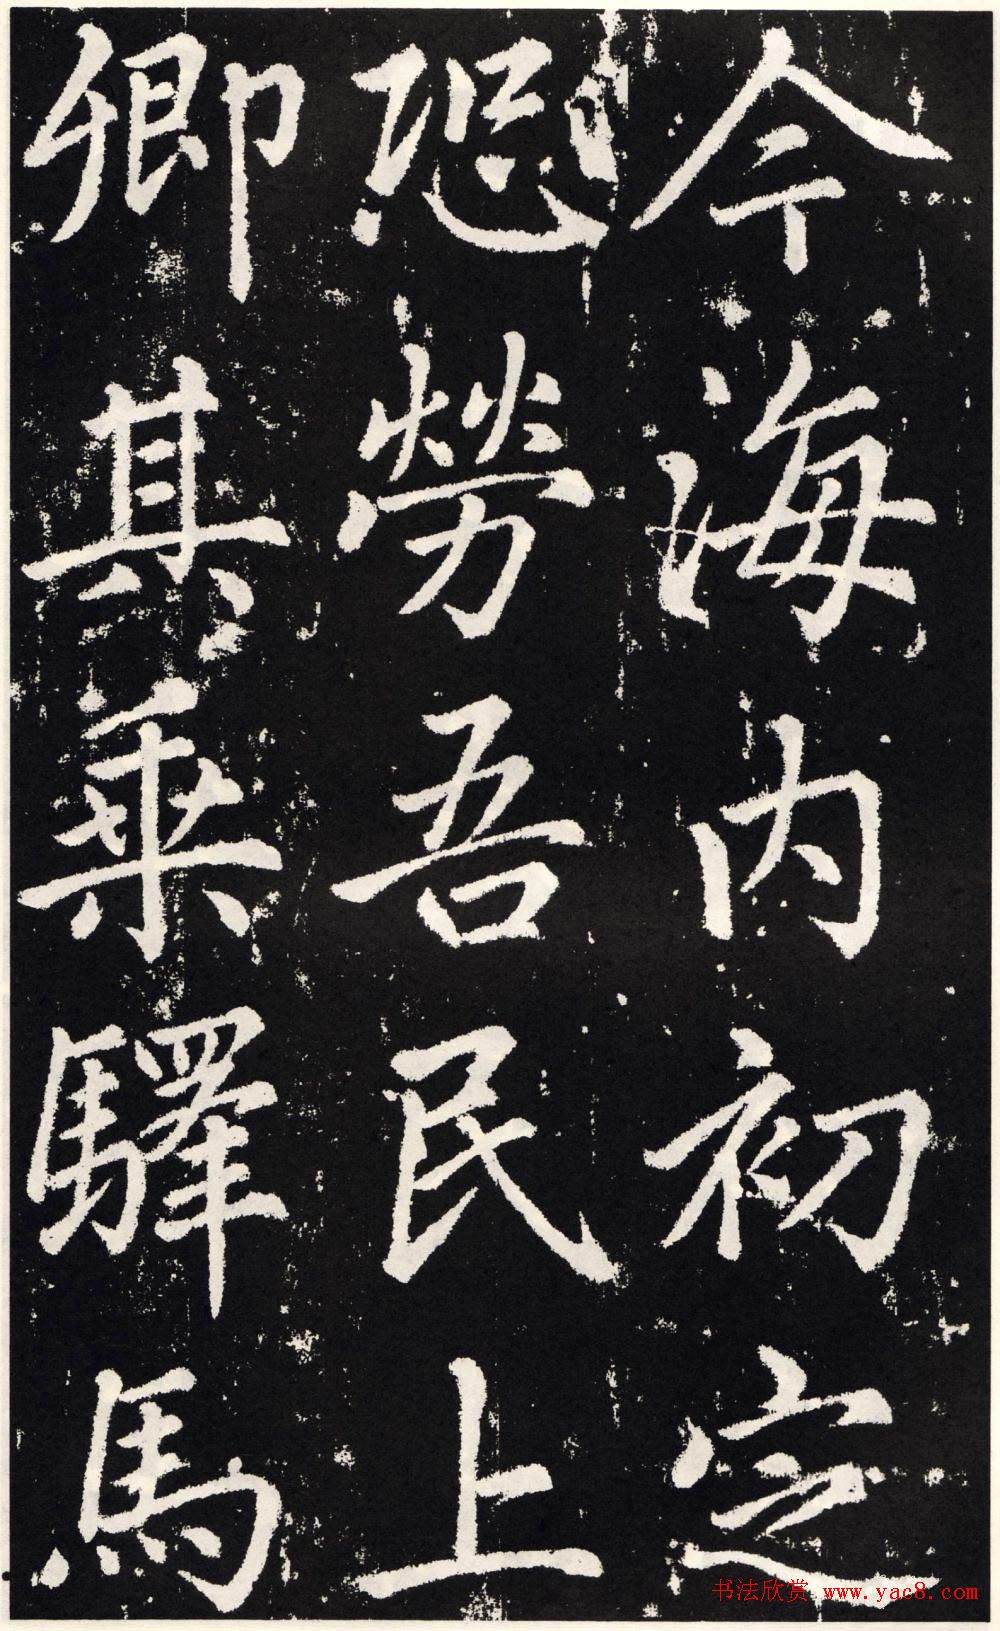 今海内初定
恐勞吾民上
卿其乗驛馬
书法欣赏 www.yac8.com